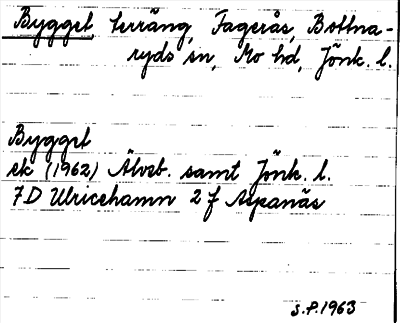 Bygget terräng, Fagerås, Bottna-
ryds sn, Mo hd, Jönk. l.
Bygget
ek (1962) Älvsb. samt Jönk. l.
7D Ulricehamn 2 f Aspanäs
S.P. 1963